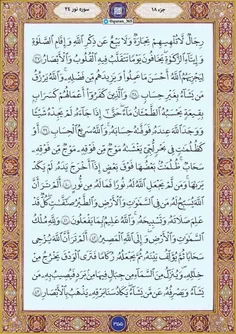 جزء ۱۸
سوره نور ۲۴
رِجَالٌ لَا تُلْهِيهِمْ تِجَارَةٌ وَلَا بَيْعٌ عَن ذِكْرِ اللَّهِ وَإِقَامِ الصَّلَوٰةِ
وَإِيتَاءِ الزَّكَوٰةِ يَخَافُونَ يَوْمًا تَتَقَلَّبُ فِيهِ الْقُلُوبُ وَالْأَبْصَارُ
لِيَجْزِيَهُمُ اللَّهُ أَحْسَنَ مَا عَمِلُوا وَيَزِيدَهُم مِّن فَضْلِهِ وَاللَّهُ يَرْزُقُ
مَن يَشَاءُ بِغَيْرِ حِسَابٍ وَالَّذِينَ كَفَرُوا أَعْمَالُهُمْ كَسَرَابٍ
بِقِيعَةٍ يَحْسَبُهُ الظَّمْآنُ مَاءً حَتَّىٰ إِذَا جَاءَهُ لَمْ يَجِدْهُ شَيْئًا
وَوَجَدَ اللَّهَ عِندَهُ فَوَفَّاهُ حِسَابَهُ وَاللَّهُ سَرِيعُ الْحِسَابِ أَوْ
كَظُلُمَاتٍ فِي بَحْرٍ لُّجِّيٍّ يَغْشَاهُ مَوْجٌ مِّن فَوْقِهِ مَوْجٌ مِّن فَوْقِهِ
سَحَابٌ ظُلُمَاتٌ بَعْضُهَا فَوْقَ بَعْضٍ إِذَا أَخْرَجَ يَدَهُ لَمْ يَكَدْ
يَرَاهَا وَمَن لَّمْ يَجْعَلِ اللَّهُ لَهُ نُورًا فَمَا لَهُ مِن نُّورٍ أَلَمْ تَرَ أَنَّ
اللَّهَ يُسَبِّحُ لَهُ مَن فِي السَّمَوَاتِ وَالْأَرْضِ وَالطَّيْرُ صَافَّاتٍ كُلٌّ قَدْ
عَلِمَ صَلَاتَهُ وَتَسْبِيحَهُ وَاللَّهُ عَلِيمٌ بِمَا يَفْعَلُونَ وَلِلَّهِ مُلْكُ
السَّمَوَاتِ وَالْأَرْضِ وَإِلَى اللَّهِ الْمَصِيرُ أَلَمْ تَرَ أَنَّ اللَّهَ يُزْجِي
سَحَابًا ثُمَّ يُؤَلِّفُ بَيْنَهُ ثُمَّ يَجْعَلُهُ رُكَامًا فَتَرَى الْوَدْقَ يَخْرُجُ مِنْ
خِلَالِهِ وَيُنَزِّلُ مِنَ السَّمَاءِ مِن جِبَالٍ فِيهَا مِن بَرَدٍ فَيُصِيبُ بِهِ مَن
يَشَاءُ وَيَصْرِفُهُ عَن مَّن يَشَاءُ يَكَادُ سَنَا بَرْقِهِ يَذْهَبُ بِالْأَبْصَارِ
۳۵۵